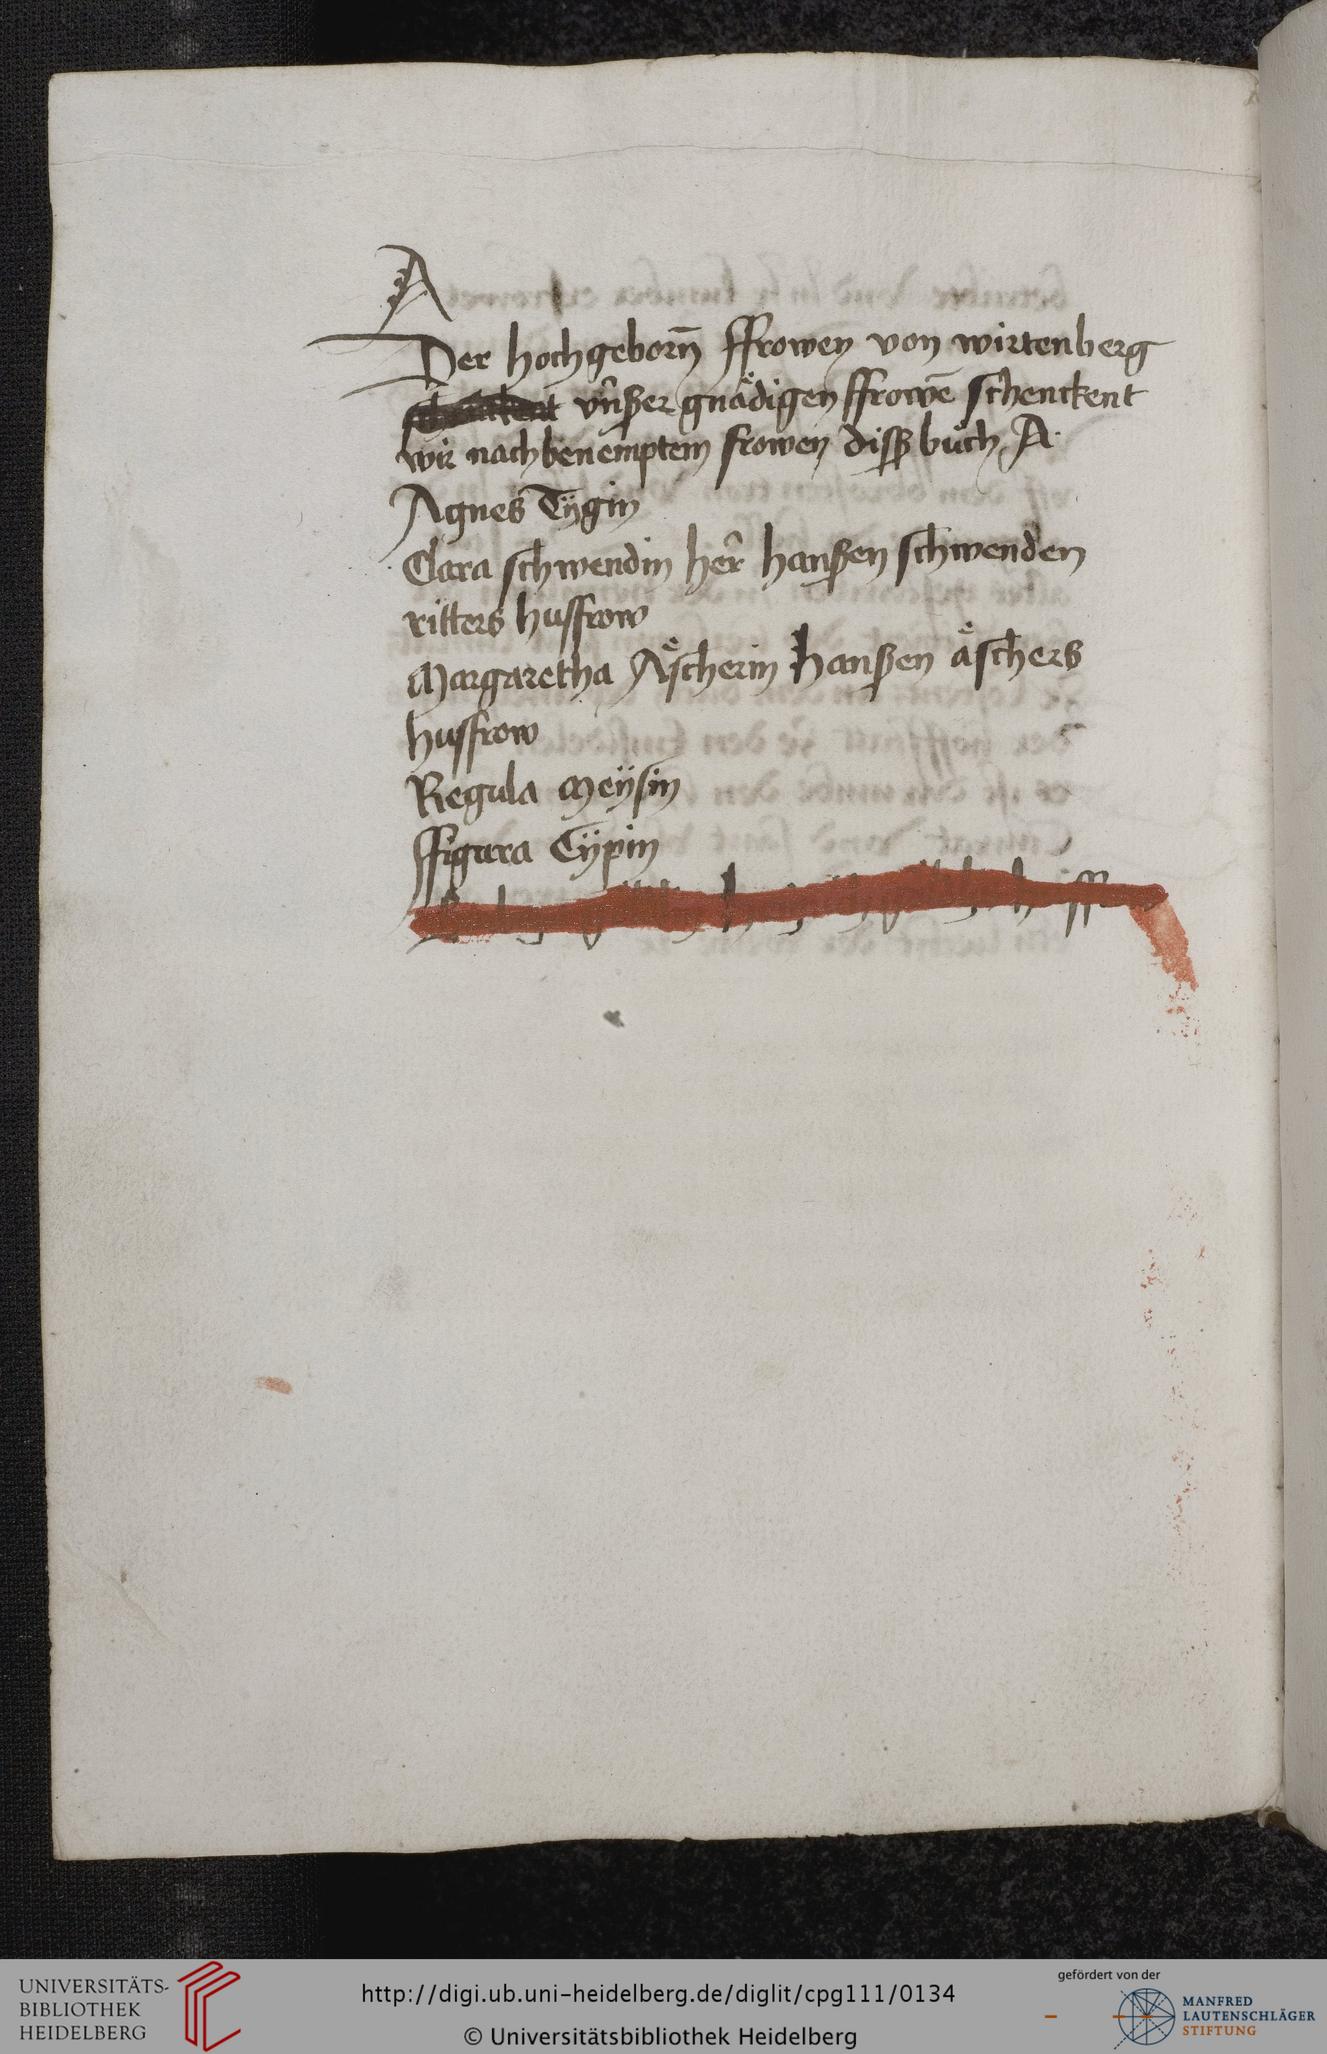 A
Der hochgeborn̄ ffrowen von wirtenberg
vn̂ßer gnaͤdigen ffrowē schenckent
wir nachbenemptem frowen disß buͦch A
Agnes Tÿgin
Clara schwendin her̂ hanßen schwenden
ritters husfrow
Margaretha Aͤscherin hanßen aͤschers
husfrow
Regula Meÿsin
ffigura Tÿpin
UNIVERSITÄTS-
BIBLIOTHEK
HEIDELBERG
http://digi.ub.uni-heidelberg.de/diglit/cpg111/0134
© Universitätsbibliothek Heidelberg
gefördert von der
MANFRED
LAUTENSCHLÄGER
STIFTUNG